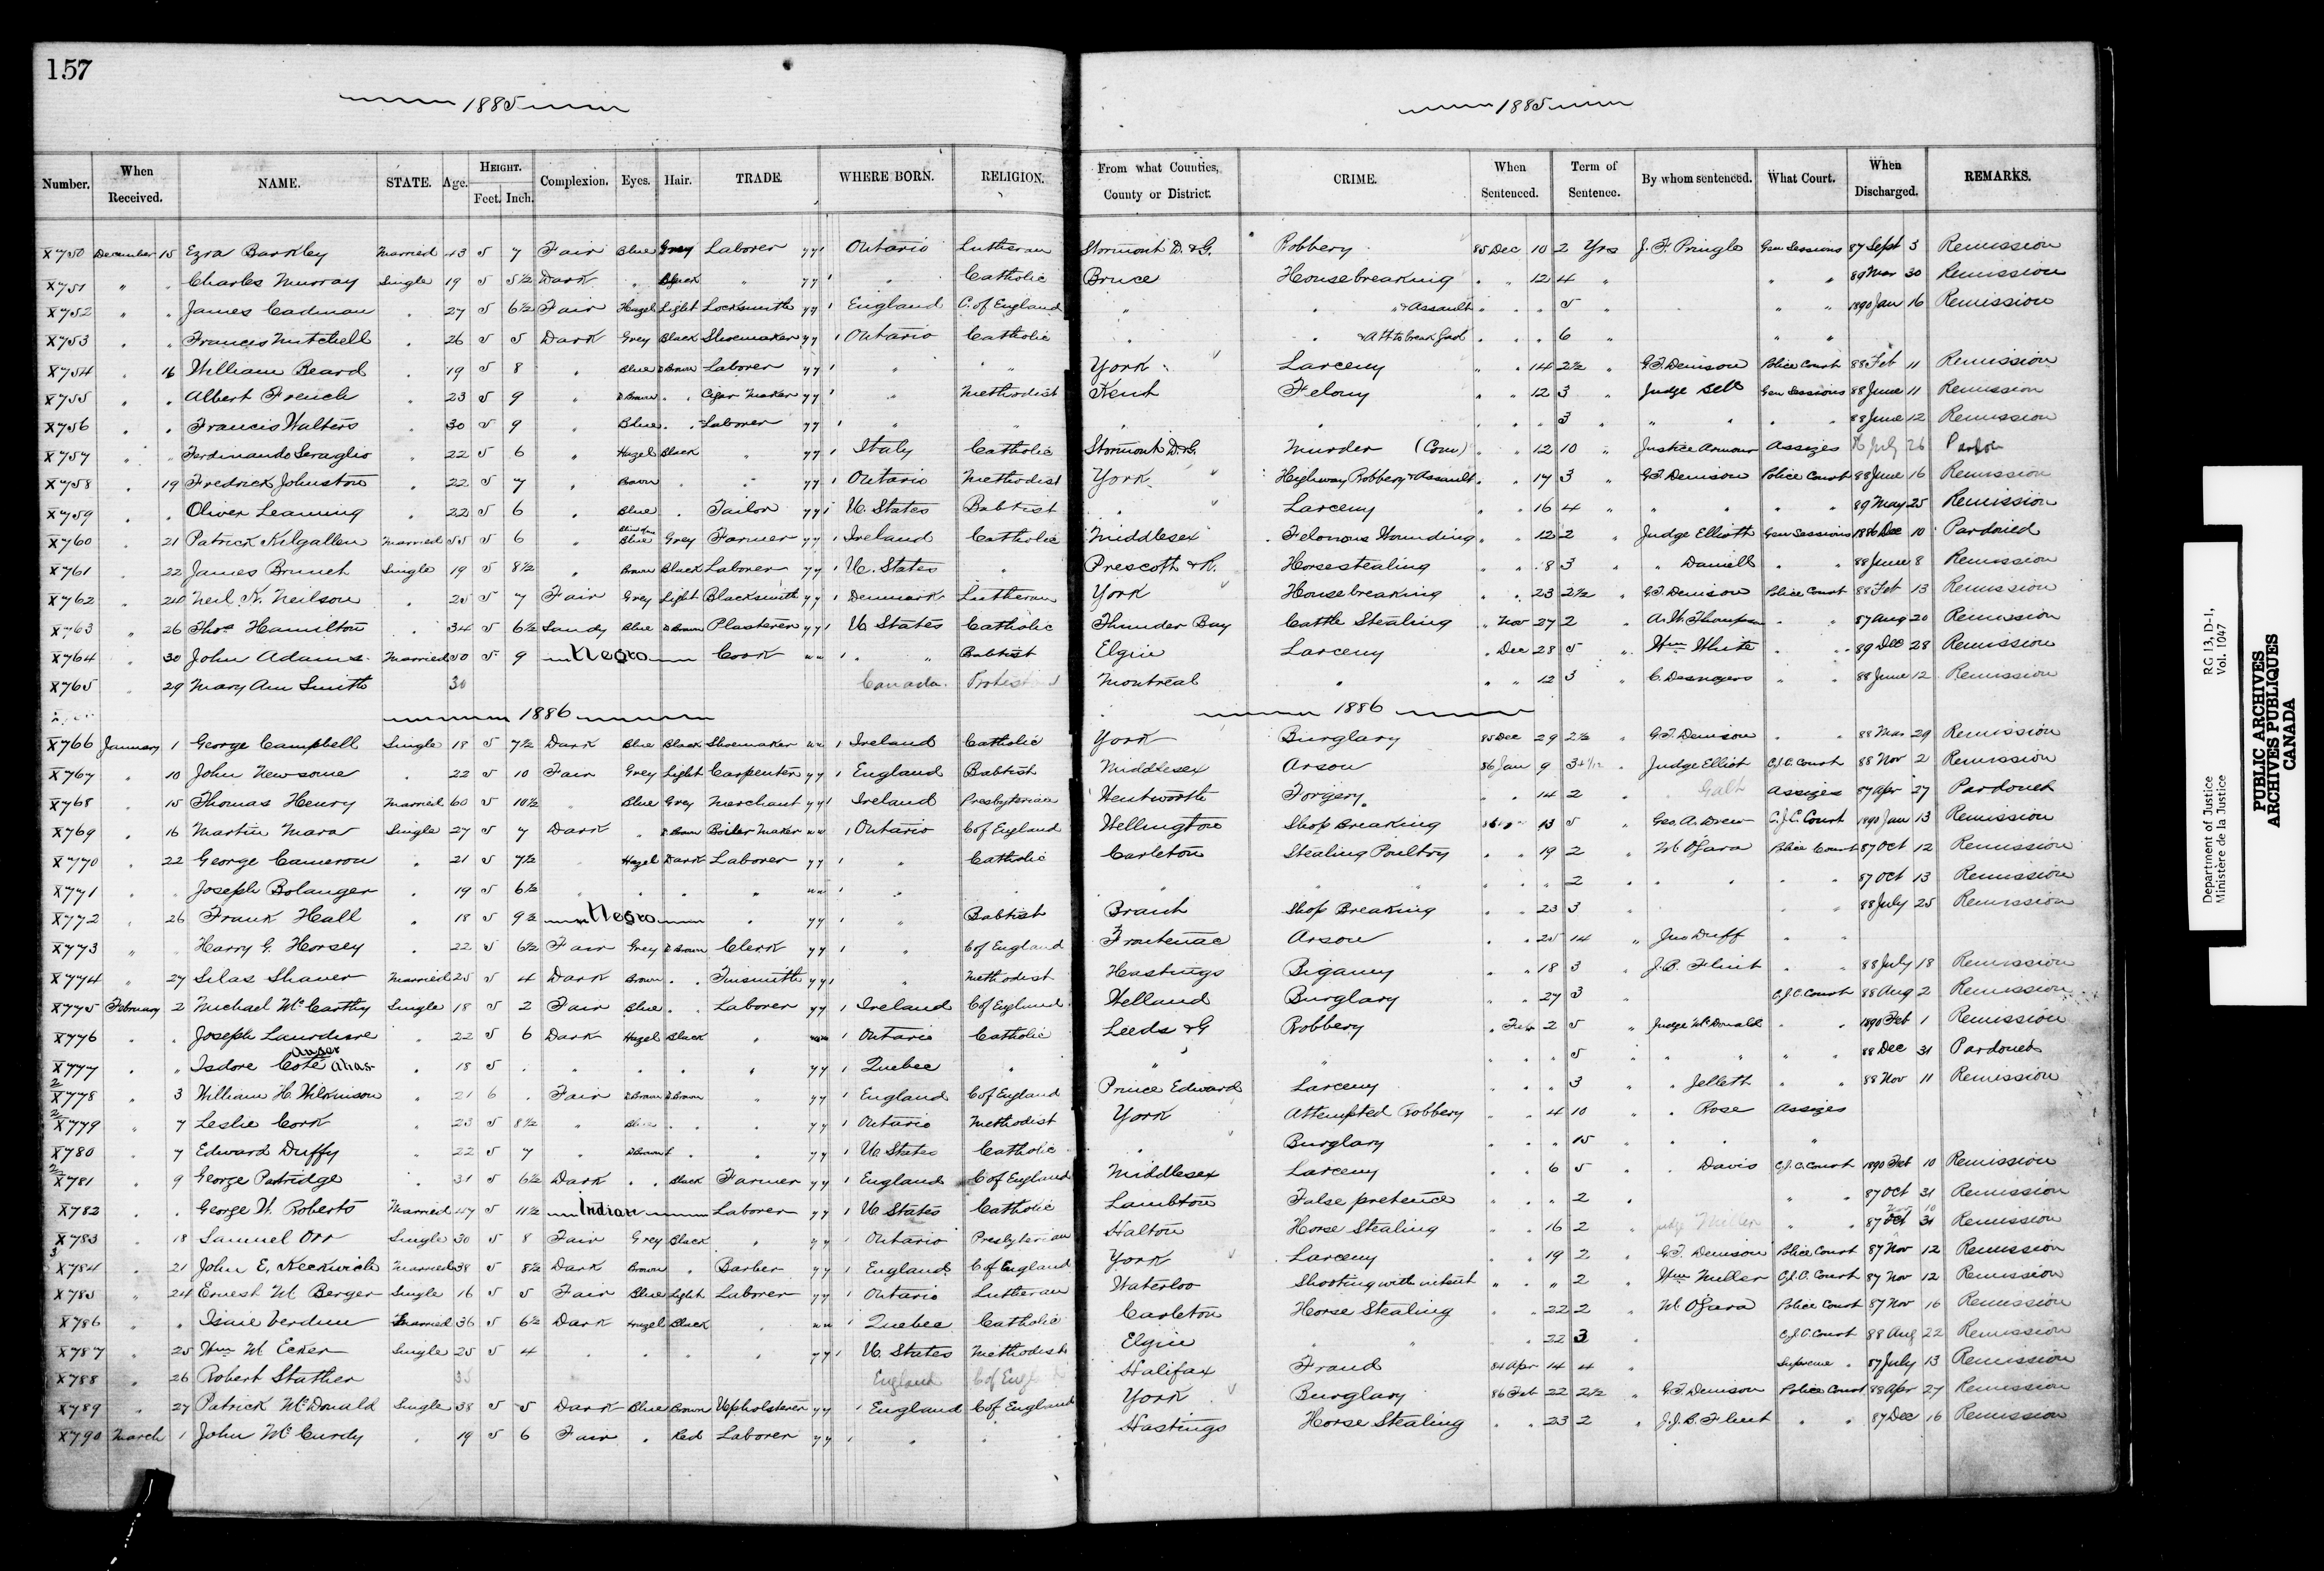 157
1885
1885
Number. When Received. NAME. STATE. Age. HEIGHT. Feet. Inch. Complexion. Eyes. Hair. TRADE. WHERE BORN. RELIGION. From what Counties, County or District. CRIME. When Sentenced. Term of Sentence. By whom sentenced. What Court. When Discharged. REMARKS.
X750 December 15 Ezra Barkley Married 43 5 7 Fair Blue Grey Laborer yy 1 Ontario Lutheran Stormont D. & G. Robbery 85 Dec 10 2 Yrs J. F. Pringle Gen Sessions 87 Sept 3 Remission
X751 " " Charles Murray Single 19 5 5½ Dark " Black " yy 1 " Catholic Bruce Housebreaking " " 12 4 " " " 89 Mar 30 Remission
X752 " " James Cadman " 27 5 6½ Fair Hazel Light Locksmith yy 1 England C. of England " " " & Assault " " " 5 " " " 1890 Jan 16 Remission
X753 " " Francis Mitchell " 26 5 5 Dark Grey Black Shoemaker yy 1 Ontario Catholic " " & Att to break Gaol " " " 6 " " "
X754 " 16 William Beard " 19 5 8 " Blue D Brown Laborer yy 1 " " York Larceny " " 14 2½ " G. T. Denison Police Court 88 Feb 11 Remission
X755 " " Albert French " 23 5 9 " D Brown " " Cigar Maker yy 1 " Methodist Kent Felony " " 12 3 " Judge Bell Gen Sessions 88 June 11 Remission
X756 " " Francis Walters " 30 5 9 " Blue " " Laborer yy 1 " " " " " " " 3 " " " " " 88 June 12 Remission
X757 " " Ferdinando Seraglio " 22 5 6 " Hazel Black " yy 1 Italy Catholic Stormont D. G. Murder (Com) " " 12 10 " Justice Armour Assizes July 26 Pardon
X758 " 19 Fredrick Johnston " 22 5 7 " Brown " " yy 1 Ontario Methodist York Highway Robbery & Assault " " 17 3 " G. T. Denison Police Court 88 June 16 Remission
X759 " " Oliver Leaming " 22 5 6 " Blue " Tailor yy 1 U. States Babtist " Larceny " " 16 4 " " " " " 89 May 25 Remission
X760 " 21 Patrick Kilgallen Married 55 5 6 " Blue Grey Farmer yy 1 Ireland Catholic Middlesex Felonous Wounding " " 12 2 " Judge Elliott Gen Sessions 1886 Dec 10 Pardoned
X761 " 22 James Brunet Single 19 5 8½ " Brown Black Laborer yy 1 U. States " Prescott & R. Horsestealing " " 8 3 " " Daniell " " 88 June 8 Remission
X762 " 24 Neil K. Neilson " 25 5 7 Fair Grey Light Blacksmith yy 1 Denmark Lutheran York Housebreaking " " 23 2½ " G. T. Denison Police Court 88 Feb 13 Remission
X763 " 26 Thos Hamilton " 34 5 6½ Sandy Blue D Brown Plasterer yy 1 U. States Catholic Thunder Bay Cattle Stealing " Nov 27 2 " A. W. Thompson " " 87 Aug 20 Remission
X764 " 30 John Adams Married 50 5 9 Negro Cook 1 " " Babtist Elgin Larceny " Dec 28 5 " Wm White " " 89 Dec 28 Remission
X765 29 Mary Ann Smith 30 Canada Protestant Montreal " " " 12 3 " C. Desnoyers " " 88 June 12 Remission
1886 1886
X766 January 1 George Campbell Single 18 5 7½ Dark Blue Black Shoemaker 1 Ireland Catholic York Burglary 85 Dec 29 2½ " G. T. Denison " " 88 Mar 29 Remission
X767 " 10 John Newsome " 22 5 10 Fair Grey Light Carpenter yy 1 England Babtist Middlesex Arson 86 Jan 9 3 4/12 " Judge Elliot C.J.C. Court 88 Nov 2 Remission
X768 " 15 Thomas Henry Married 60 5 10½ " Blue Grey Merchant yy 1 Ireland Presbyterian Wentworth Forgery " " 14 2 " Galt Assizes 87 Apr 27 Pardoned
X769 " 16 Martin Mara Single 27 5 7 Dark " D Brown Boiler Maker 1 Ontario C of England Wellington Shop Breaking 13 5 " Geo. A. Drew C.J.C. Court 1890 Jan 13 Remission
X770 " 22 George Cameron " 21 5 7½ " Hazel Dark Laborer yy 1 " Catholic Carleton Stealing Poultry " " 19 2 " M. O'Gara Police Court 87 Oct 12 Remission
X771 " " Joseph Bolanger " 19 5 6½ " " " " 1 " " " " " " " 2 " " " " " 87 Oct 13 Remission
X772 " 26 Frank Hall " 18 5 9½ Negro " yy 1 " Babtist Brant Shop Breaking " " 23 3 " " " 88 July 25 Remission
X773 " " Harry G. Horsey 22 5 6½ Fair Grey D Brown Clerk yy 1 " C of England Frontenac Arson " " 25 14 " Jno Duff " "
X774 " 27 Silas Shaver Married 25 5 4 Dark Brown " " Tinsmith yy 1 " Methodist Hastings Bigamy " " 18 3 " J. B. Flint " " 88 July 18 Remission
X775 February 2 Michael McCarthy Single 18 5 2 Fair Blue " " Laborer yy 1 Ireland C of England Welland Burglary " " 27 3 " C.J.C. Court 88 Aug 2 Remission
X776 " " Joseph " 22 5 6 Dark Hazel Black " 1 Ontario Catholic Leeds & G Robbery " Feb 2 5 " Judge McDonald " " 1890 Feb 1 Remission
X777 " " Isdore Coté alias Auger " 18 5 " " " " " yy 1 Quebec " " " " " " 5 " " " " " 88 Dec 31 Pardoned
X778 " 3 William H. Wilkinson " 21 6 " Fair D Brown D Brown " yy 1 England C of England Prince Edward Larceny " " " 3 " " Jelleth " " 88 Nov 11 Remission
X779 " 7 Leslie Cork " 23 5 8½ " Blue " " " yy 1 Ontario Methodist York Attempted Robbery " " 4 10 " " Rose Assizes
X780 7 Edward Duffy " 22 5 7 " D Brown " " yy 1 U. States Catholic " Burglary " " " 15 " " " "
X781 " 9 George Patridge " 31 5 6½ Dark " " Black Farmer yy 1 England C of England Middlesex Larceny " " 6 5 " " Davis C.J.C. Court 1890 Feb 10 Remission
X782 " " George W. Roberts Married 47 5 11½ Indian Laborer yy 1 U. States Catholic Lambton False pretence " " " 2 " " " 87 Oct 31 Remission
X783 " 18 Samuel Orr Single 30 5 8 Fair Grey Black " yy 1 Ontario Presbyterian Halton Horse Stealing " " 16 2 " Judge Miller " " 87 Oct 31 Nov 10 Remission
X784 " 21 John E. Keekwich Married 38 5 8½ Dark Brown " Barber yy 1 England C of England York Larceny " " 19 2 " G. T. Denison Police Court 87 Nov 12 Remission
X785 " 24 Ernest W Berger Single 16 5 5 Fair Blue Light Laborer yy 1 Ontario Lutheran Waterloo Shooting with intent " " " 2 " Wm Miller C.J.C. Court 87 Nov 12 Remission
X786 " " Isaie Verdun Married 36 5 6½ Dark Hazel Black " 1 Quebec Catholic Carleton Horse Stealing " " 22 2 " M. O'Gara Police Court 87 Nov 16 Remission
X787 " 25 Wm W Ecker Single 25 5 4 " " " " yy 1 U. States Methodist Elgin " " " " 22 3 " C.J.C. Court 88 Aug 22 Remission
X788 " 26 Robert Stather 35 England C of England Halifax Fraud 84 Apr 14 4 " Supreme " 87 July 13 Remission
X789 " 27 Patrick McDonald Single 38 5 5 Dark Blue Brown Upholsterer yy 1 England C of England York Burglary 86 Feb 22 2½ " G. T. Denison Police Court 88 Apr 27 Remission
X790 March 1 John McCurdy " 19 5 6 Fair " Red Laborer yy 1 " " Hastings Horse Stealing " " 23 2 " J. J. B. Flint " " 87 Dec 16 Remission
Department of Justice RG 13, D-1,
Ministère de la Justice Vol. 1047
PUBLIC ARCHIVES
ARCHIVES PUBLIQUES
CANADA